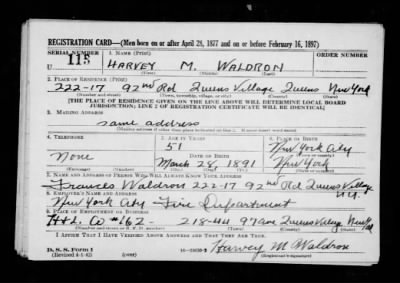 REGISTRATION CARD—(Men born on or after April 28, 1877 and on or before February 16, 1897)
SERIAL NUMBER 1. NAME (Print) ORDER NUMBER
U 115 HARVEY M. WALDRON
(First) (Middle) (Last)
2. PLACE OF RESIDENCE (Print)
222-17 92nd Rd Queens Village Queens New York
(Number and street) (Town, township, village, or city) (County) (State)
[THE PLACE OF RESIDENCE GIVEN ON THE LINE ABOVE WILL DETERMINE LOCAL BOARD
JURISDICTION; LINE 2 OF REGISTRATION CERTIFICATE WILL BE IDENTICAL]
3. MAILING ADDRESS
same address
[Mailing address if other than place indicated on line 2. If same insert word same]
4. TELEPHONE 5. AGE IN YEARS 6. PLACE OF BIRTH
51 New York City
None DATE OF BIRTH
March 28, 1891 New York
7. NAME AND ADDRESS OF PERSON WHO WILL ALWAYS KNOW YOUR ADDRESS
Frances Waldron 222-17 92nd Rd Queens Village
8. EMPLOYER'S NAME AND ADDRESS N.Y.
New York City Fire Department
9. PLACE OF EMPLOYMENT OR BUSINESS
H+L Co #162- 218-44 97 ave Queens Village New York
(Number and street or R. F. D. number) (Town) (County) (State)
I AFFIRM THAT I HAVE VERIFIED ABOVE ANSWERS AND THAT THEY ARE TRUE.
D. S. S. Form 1
(Revised 4-1-42) Harvey M Waldron
(Registrant's signature)